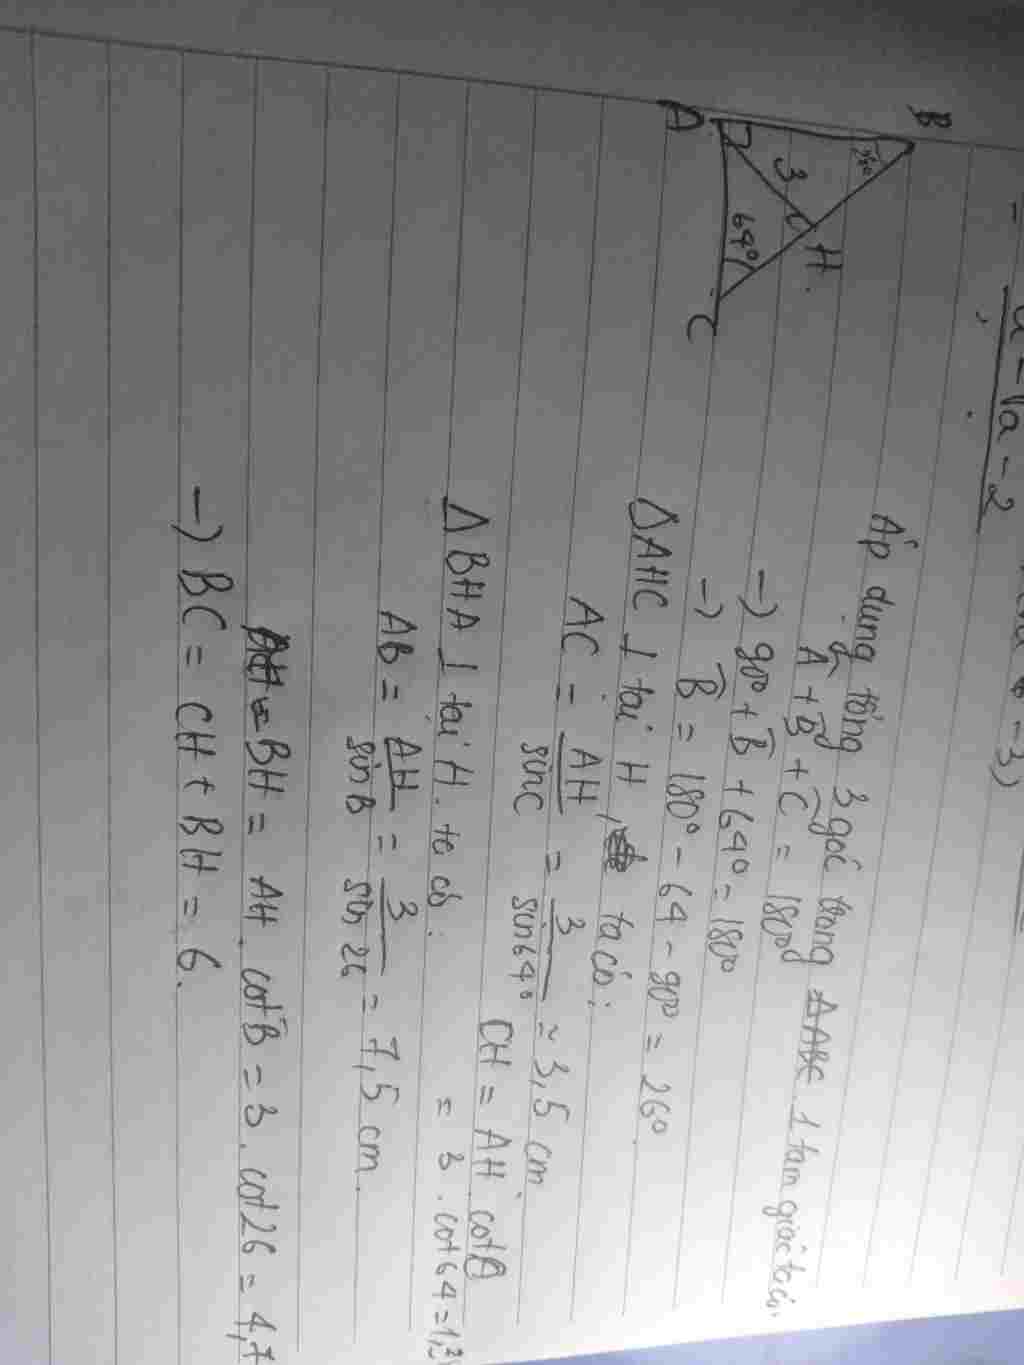 a - √a - 2
- 3)
B
26°
3
H.
A
64°
C
Áp dụng tổng 3 góc trong 1 tam giác ta có.
Â + B̂ + Ĉ = 180°
-) 90° + B̂ + 64° = 180°
-) B̂ = 180° - 64 - 90° = 26°.
ΔAHC ⊥ tại H, ta có:
AC = AH/sinC = 3/sin64° ≈ 3,5 cm
CH = AH. cot
= 3 . cot64 = 1,3
ΔBHA ⊥ tại H. ta có:
AB = AH/sinB = 3/sin26 = 7,5 cm.
BH = AH . cotB = 3 . cot26 = 4,7
-) BC = CH + BH = 6.